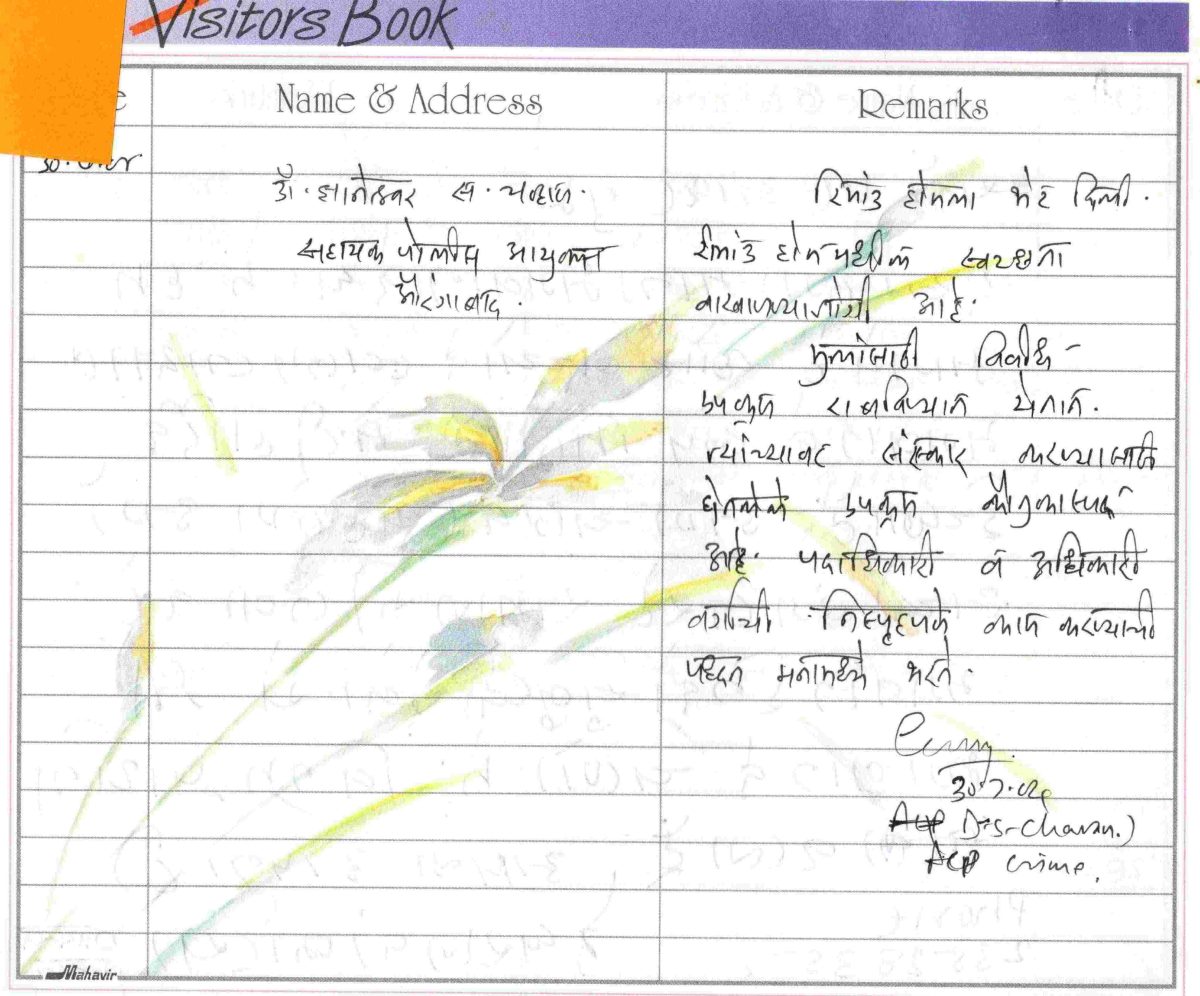 Visitors Book
Name & Address
Remarks
डॉ. ज्ञानेश्वर स. चव्हाण.
सहायक पोलीस आयुक्त
औरंगाबाद.
रिमांड होमला भेट दिली.
रीमांड होम मधील स्वच्छता
वाखाणण्याजोगी आहे.
मुलांसाठी विविध
उपक्रम राबविण्यात येतात.
त्यांच्यावर संस्कार करण्यासाठी
घेतलेले उपक्रम कौतुकास्पद
आहे. पदाधिकारी व अधिकारी
वर्गाची निस्पृहपणे काम करण्याची
पध्दत मनामध्ये भरते.
30.7.04
D.S. Chavan.)
ACP crime.
Mahavir